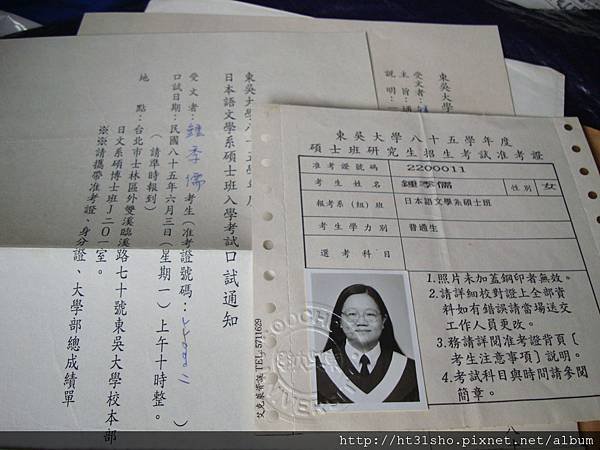 東吳大學八十五學年度
日本語文學系碩士班入學考試口試通知
受文者：鍾季儒 考生（准考證號碼：
口試日期：民國八十五年六月三日（星期一）上午十時整。
（請準時報到）
地　點：台北市士林區外雙溪臨溪路七十號東吳大學校本部
日文系碩博士班J二〇一室。
※※請攜帶准考證、身分證、大學部總成績單
東吳大學
受文者：
主旨：
說明：
東吳大學八十五學年度
碩士班研究生招生考試准考證
准考證號碼 2200011
考生姓名 鍾季儒 性別 女
報考系(組)班 日本語文學系碩士班
考生學力別 普通生
選考科目
1.照片未加蓋鋼印者無效。
2.請詳細校對證上全部資
料如有錯誤請當場送交
工作人員更改。
3.務請詳閱准考證背頁〔
考生注意事項〕說明。
4.考試科目與時間請參閱
簡章。
TEL: 5711629
http://ht31sho.pixnet.net/album